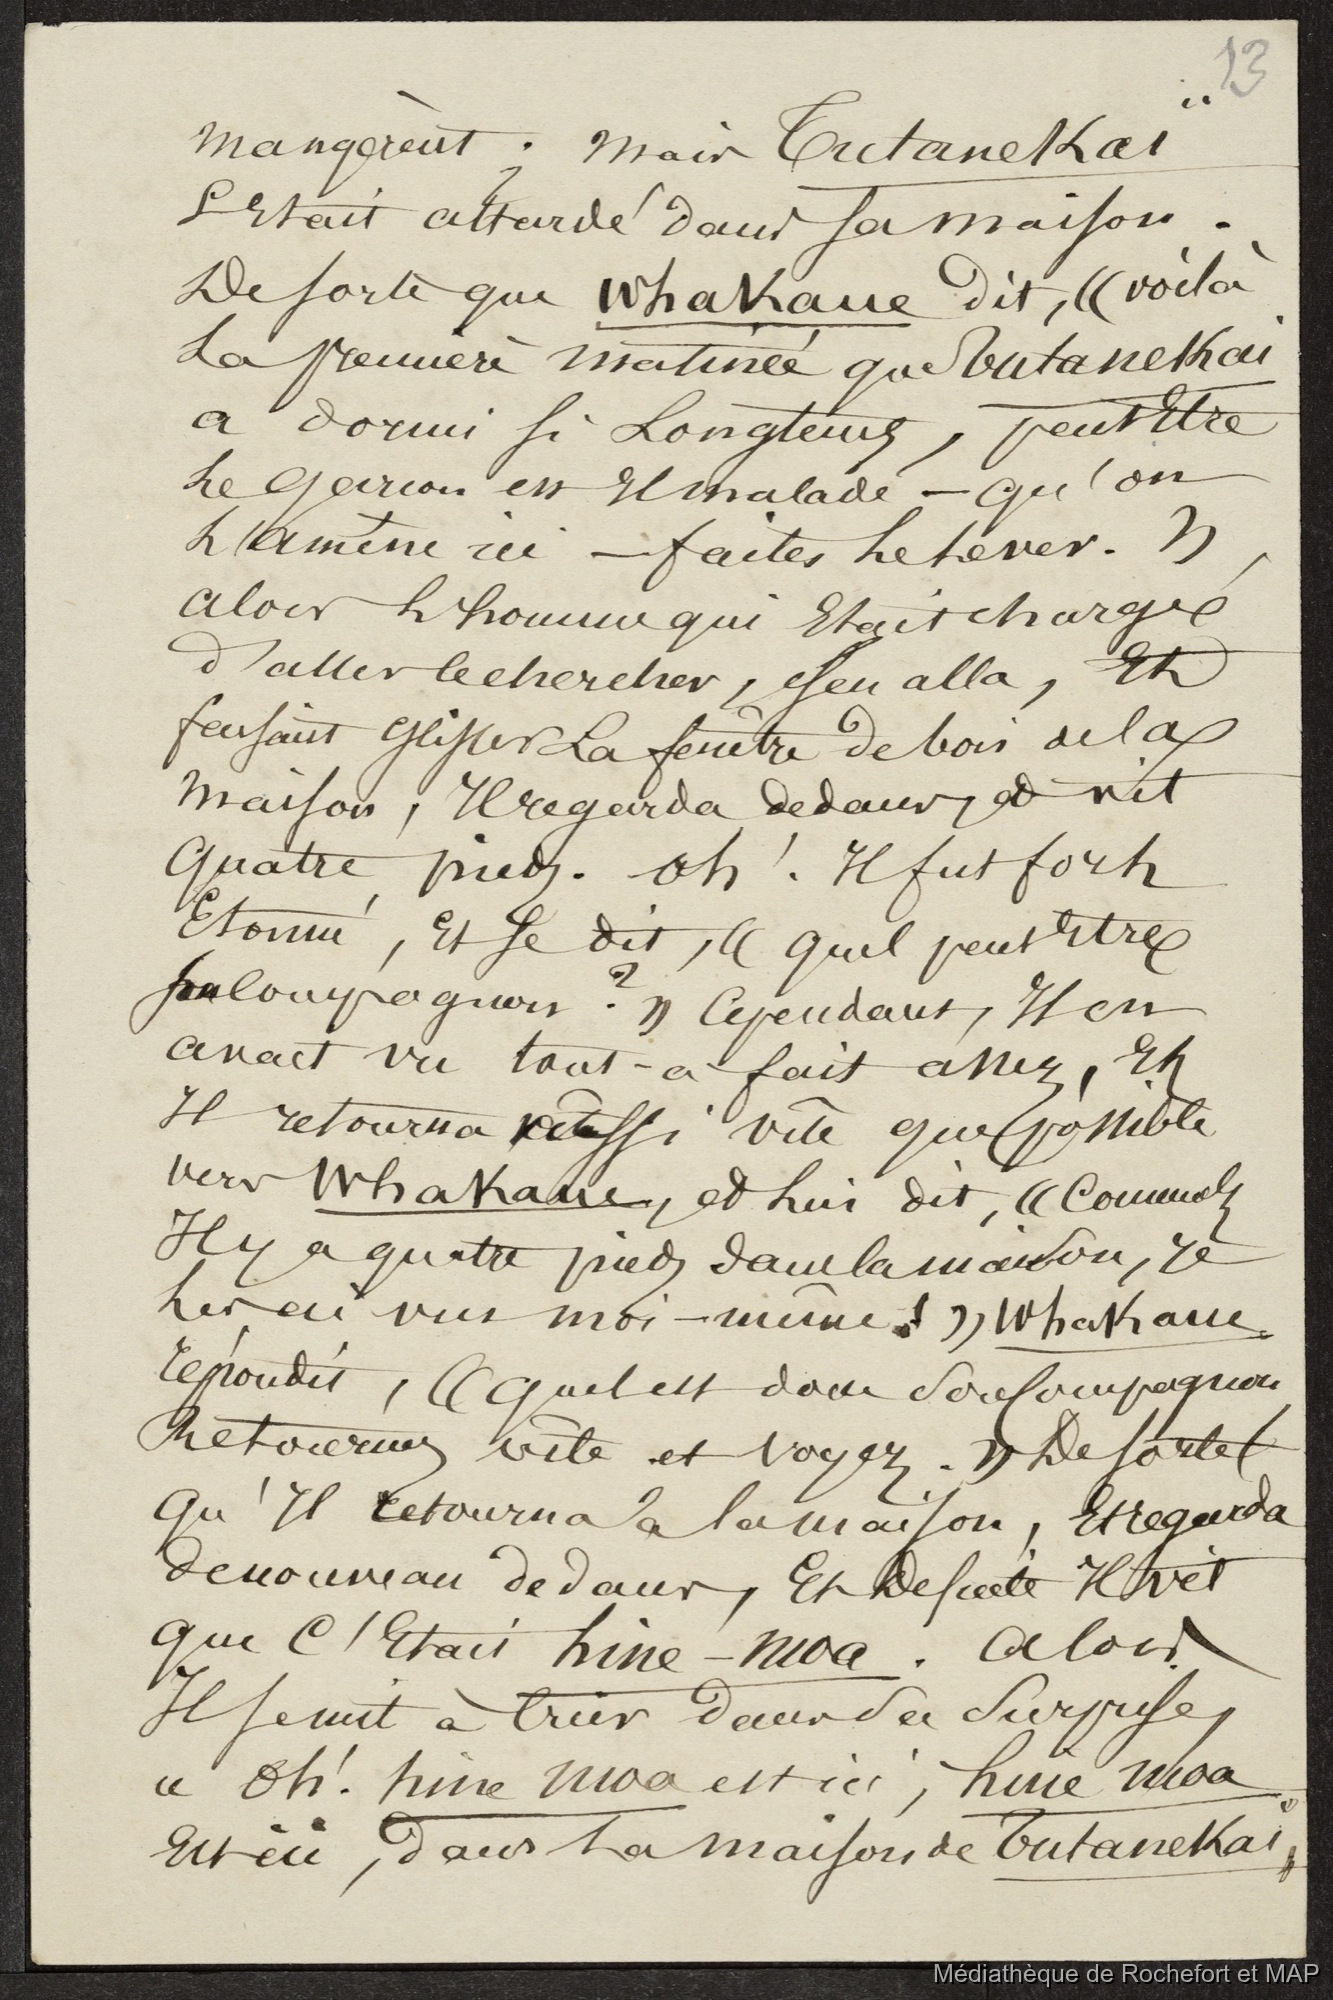 13
mangèrent ; mais Tutanekaï
s'était attardé dans sa maison.
De sorte que Whakaue dit, « voilà
La première matinée que Tutanekai
a dormi si Longtems, peut Etre
Le Garcon est Il malade — qu'on
L'amène ici — faites le lever. »
alors L'homme qui Etait chargé
d'aller le chercher, s'en alla, Et
faisant Glisser La fenêtre de bois de la
maison, Il regarda dedans, et vit
Quatre pieds. Oh! Il fut fort
Etonné, Et se dit, « Quel peut Etre
son Compagnon ? » Cependant, Il en
avait vu tout-à fait assez, Et
Il retourna aussi vite que possible
vers Whakaue, et Lui dit, « Comment
Il y a quatre pieds dans la maison, je
les ai vus moi-même ! » Whakaue
répondit, « Quel est donc son Compagnon
Retournez vite et voyez. » De sorte
qu'Il retourna à la maison, Et regarda
de nouveau dedans, Et De suite Il vit
que C'Etait hine-moa. Alors
Il se mit à Crier dans sa surprise,
« Oh! hine moa est ici, hine moa
Est ici, dans La maison de Tutanekaï,
Médiathèque de Rochefort et MAP